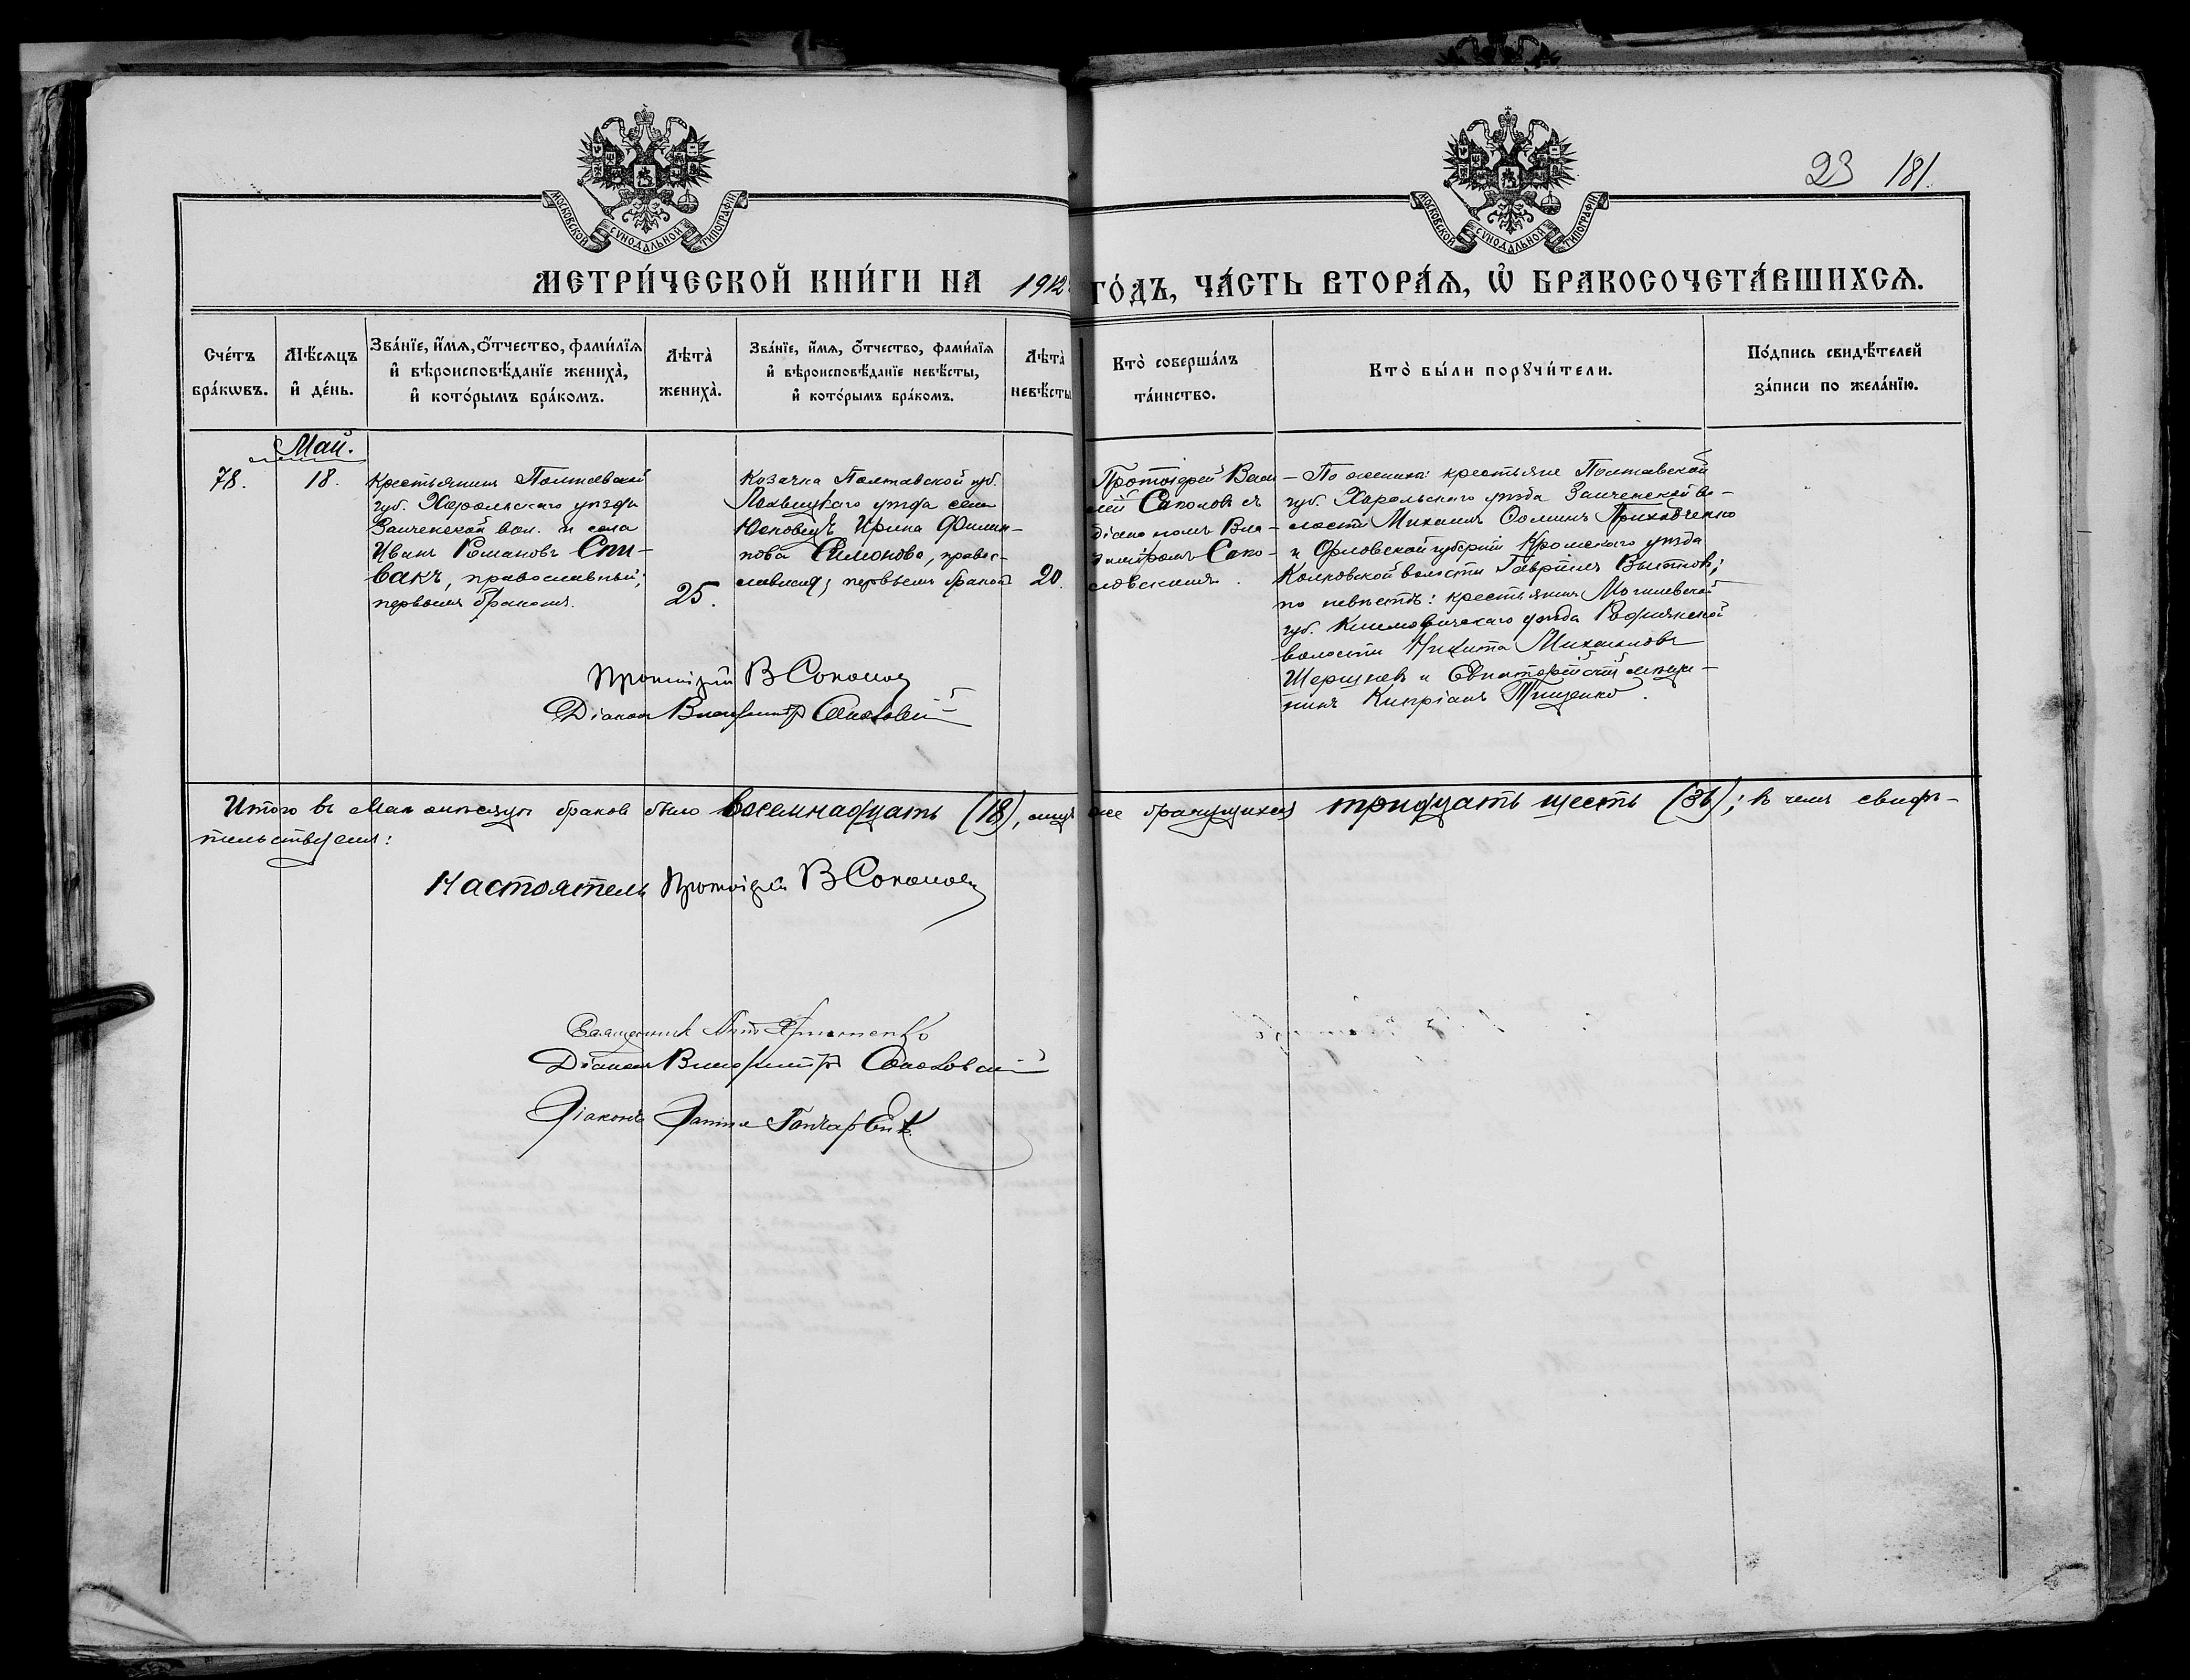 23 181.
МОСКОВСКОЙ СѴНОДАЛЬНОЙ ТИПОГРАФІИ
МОСКОВСКОЙ СѴНОДАЛЬНОЙ ТИПОГРАФІИ
МЕТРИ́ЧЕСКОЙ КНИ́ГИ НА 1912 ГО́ДЪ, ЧА́СТЬ ВТОРА́Ѧ, Ѡ҆ БРАКОСОЧЕТА́ВШИХСѦ.
Сче́тъ
бра́кѡвъ.
Мѣ́сѧцъ
и҆ де́нь.
Зва́нїе, и҆́мѧ, ѻ҆́тчество, фами́лїѧ
и҆ вѣроисповѣ́данїе жениха̀,
и҆ кото́рымъ бра́комъ.
Лѣта̀
жениха̀.
Зва́нїе, и҆́мѧ, ѻ҆́тчество, фами́лїѧ
и҆ вѣроисповѣ́данїе невѣ́сты,
и҆ кото́рымъ бра́комъ.
Лѣта̀
невѣ́сты
Кто̀ соверша́лъ
та́инство.
Кто̀ бы́ли порꙋчи́тели.
По́дпись свидѣ́телей
за́писи по жела́нїю.
Май.
78.
18.
Крестьянинъ Полтавской
губ. Хорольскаго уѣзда
Заиченской вол. и села
Иванъ Романовъ Спи-
вакъ, православный;
первымъ бракомъ.
25.
Козачка Полтавской губ.
Лохвицкаго уѣзда села
Юсковецъ Ирина Филип-
пова Симоново, правос-
лавная, первымъ бракомъ
20.
Протоіерей Васи
лій Соколовъ съ
діакономъ Вла-
диміромъ Соко-
ловскимъ.
- По женихѣ: крестьяне Полтавской
губ. Хорольскаго уѣзда Заиченской во-
лости Михаилъ Ѳоминъ Приходченко
и Орловской губерніи Кромскаго уѣзда
волости Гавріилъ
по невѣстѣ: крестьянинъ Могилевской
губ. Климовичскаго уѣзда
волости Никита Михаиловъ
и Евпаторійскій мѣща-
нинъ Кипріанъ Тищенко.
Протоіерей В Соколовъ
Діаконъ Владиміръ Соколовскій
Итого въ Маѣ мѣсяцѣ браковъ было восемнадцать (18), лицъ же брачущихся тридцать шесть (36); въ чемъ свидѣ-
тельствуемъ:
Настоятель Протоіерей В Соколовъ
Священникъ
Діаконъ Владиміръ Соколовскій
Діаконъ Гончаренко